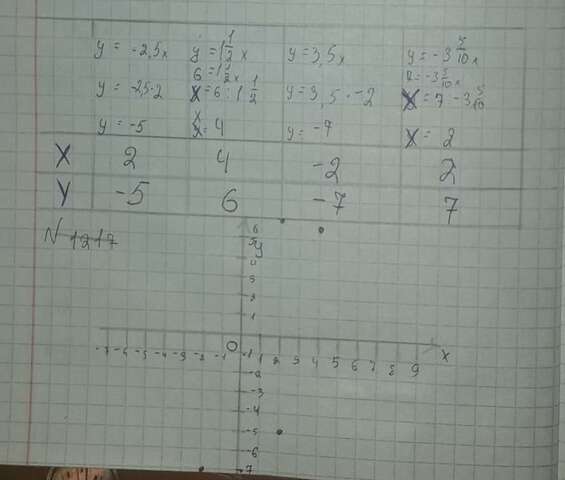 y = -2,5x y = 1 1/2 x y = 3,5x y = -3 5/10 x
6 = 1 1/2 x 7 = -3 5/10 x
y = -2,5·2 x = 6 : 1 1/2 y = 3,5·-2 x = 7 -3 5/10
y = -5 x = 4 y = -7 x = 2
X 2 4 -2 2
Y -5 6 -7 7
N 1217
6
5 y
4
3
2
1
-7 -6 -5 -4 -3 -2 -1 O 1 2 3 4 5 6 7 8 9 x
-1
-2
-3
-4
-5
-6
-7